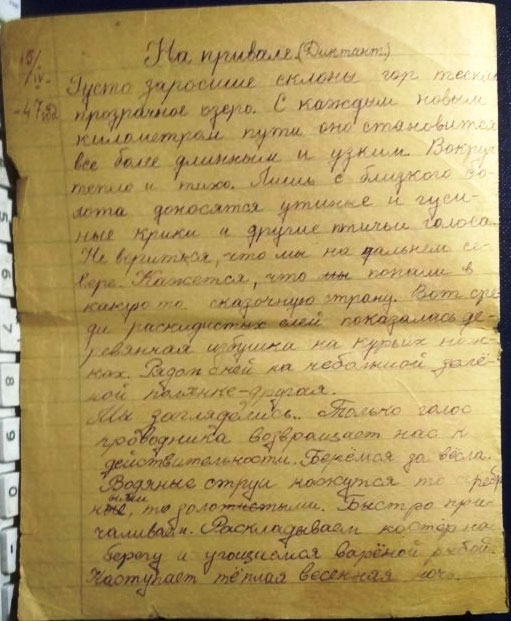 15/IV
-47 год
На привале. (Диктант.)
Густо заросшие склоны гор теснили
прозрачное озеро. С каждым новым
километром пути оно становится
все более длинным и узким. Вокруг
тепло и тихо. Лишь с близкого бо-
лота доносятся утиные и гуси-
ные крики и другие птичьи голоса.
Не вериться, что мы на дальнем се-
вере. Кажется, что мы попали в
какую то сказочную страну. Вот сре-
ди раскидистых елей показалась де-
ревянная избушка на курьих нож-
ках. Рядом с ней на небольшой зелё-
ной полянке-другая.
Мы загляделись.. Только голос
проводника возвращает нас к
действительности. Берёмся за вёсла.
Водяные струи кажутся то серебря-
ными, то золотистыми. Быстро при-
чаливаем. Раскладываем костёр на
берегу и угощаемся варёной рыбой.
Наступает тёплая весенняя ночь.